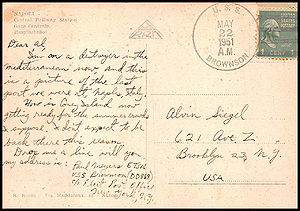 NAPOLI -
Central Railway Station
Gare Centrale
Hauptbahnhof
Dear Al,
I'm on a destroyer in the
mediterranean now and this
is a picture of the last
port we were at, Naples, Italy.
How is Coney Island now
getting ready for the summer crowds
I suppose. I don't expect to be
back there this season.
Drop me a line will you
my address is: Paul Meyers
USS Brownson (DD868)
c/o Fleet Post Office
New York, N.Y.
U. S. S.
MAY
22
1951
A.M.
BROWNSON
1 CENT
Alvin Siegel
621 Ave Z.
Brooklyn 23, N.Y.
USA